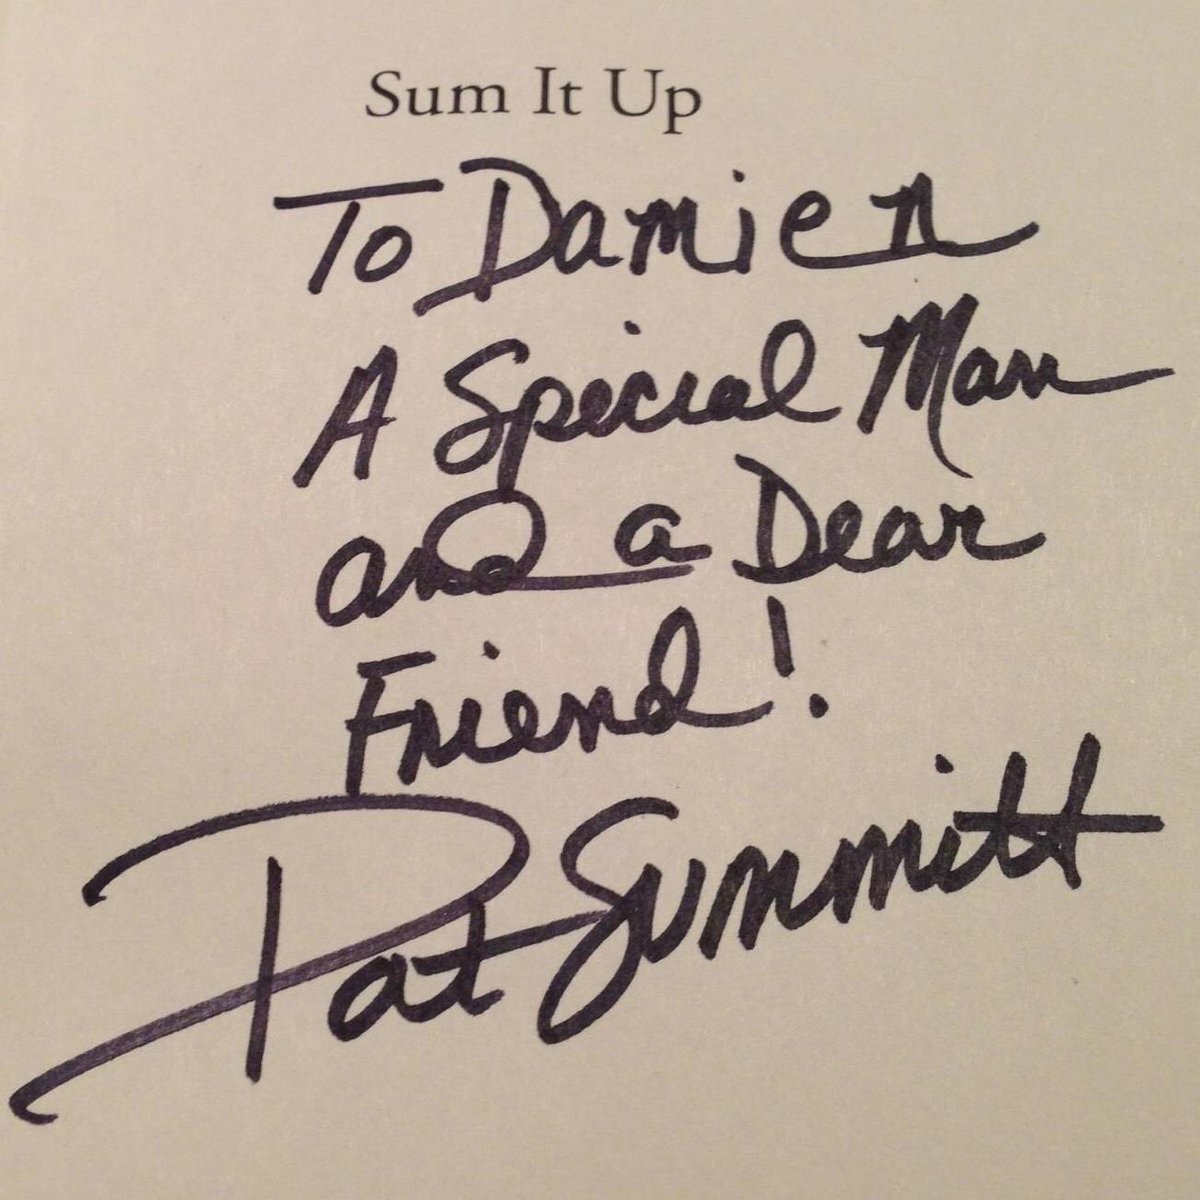 Sum It Up
To Damien
A Special Man
and a Dear
Friend!
Pat Summitt